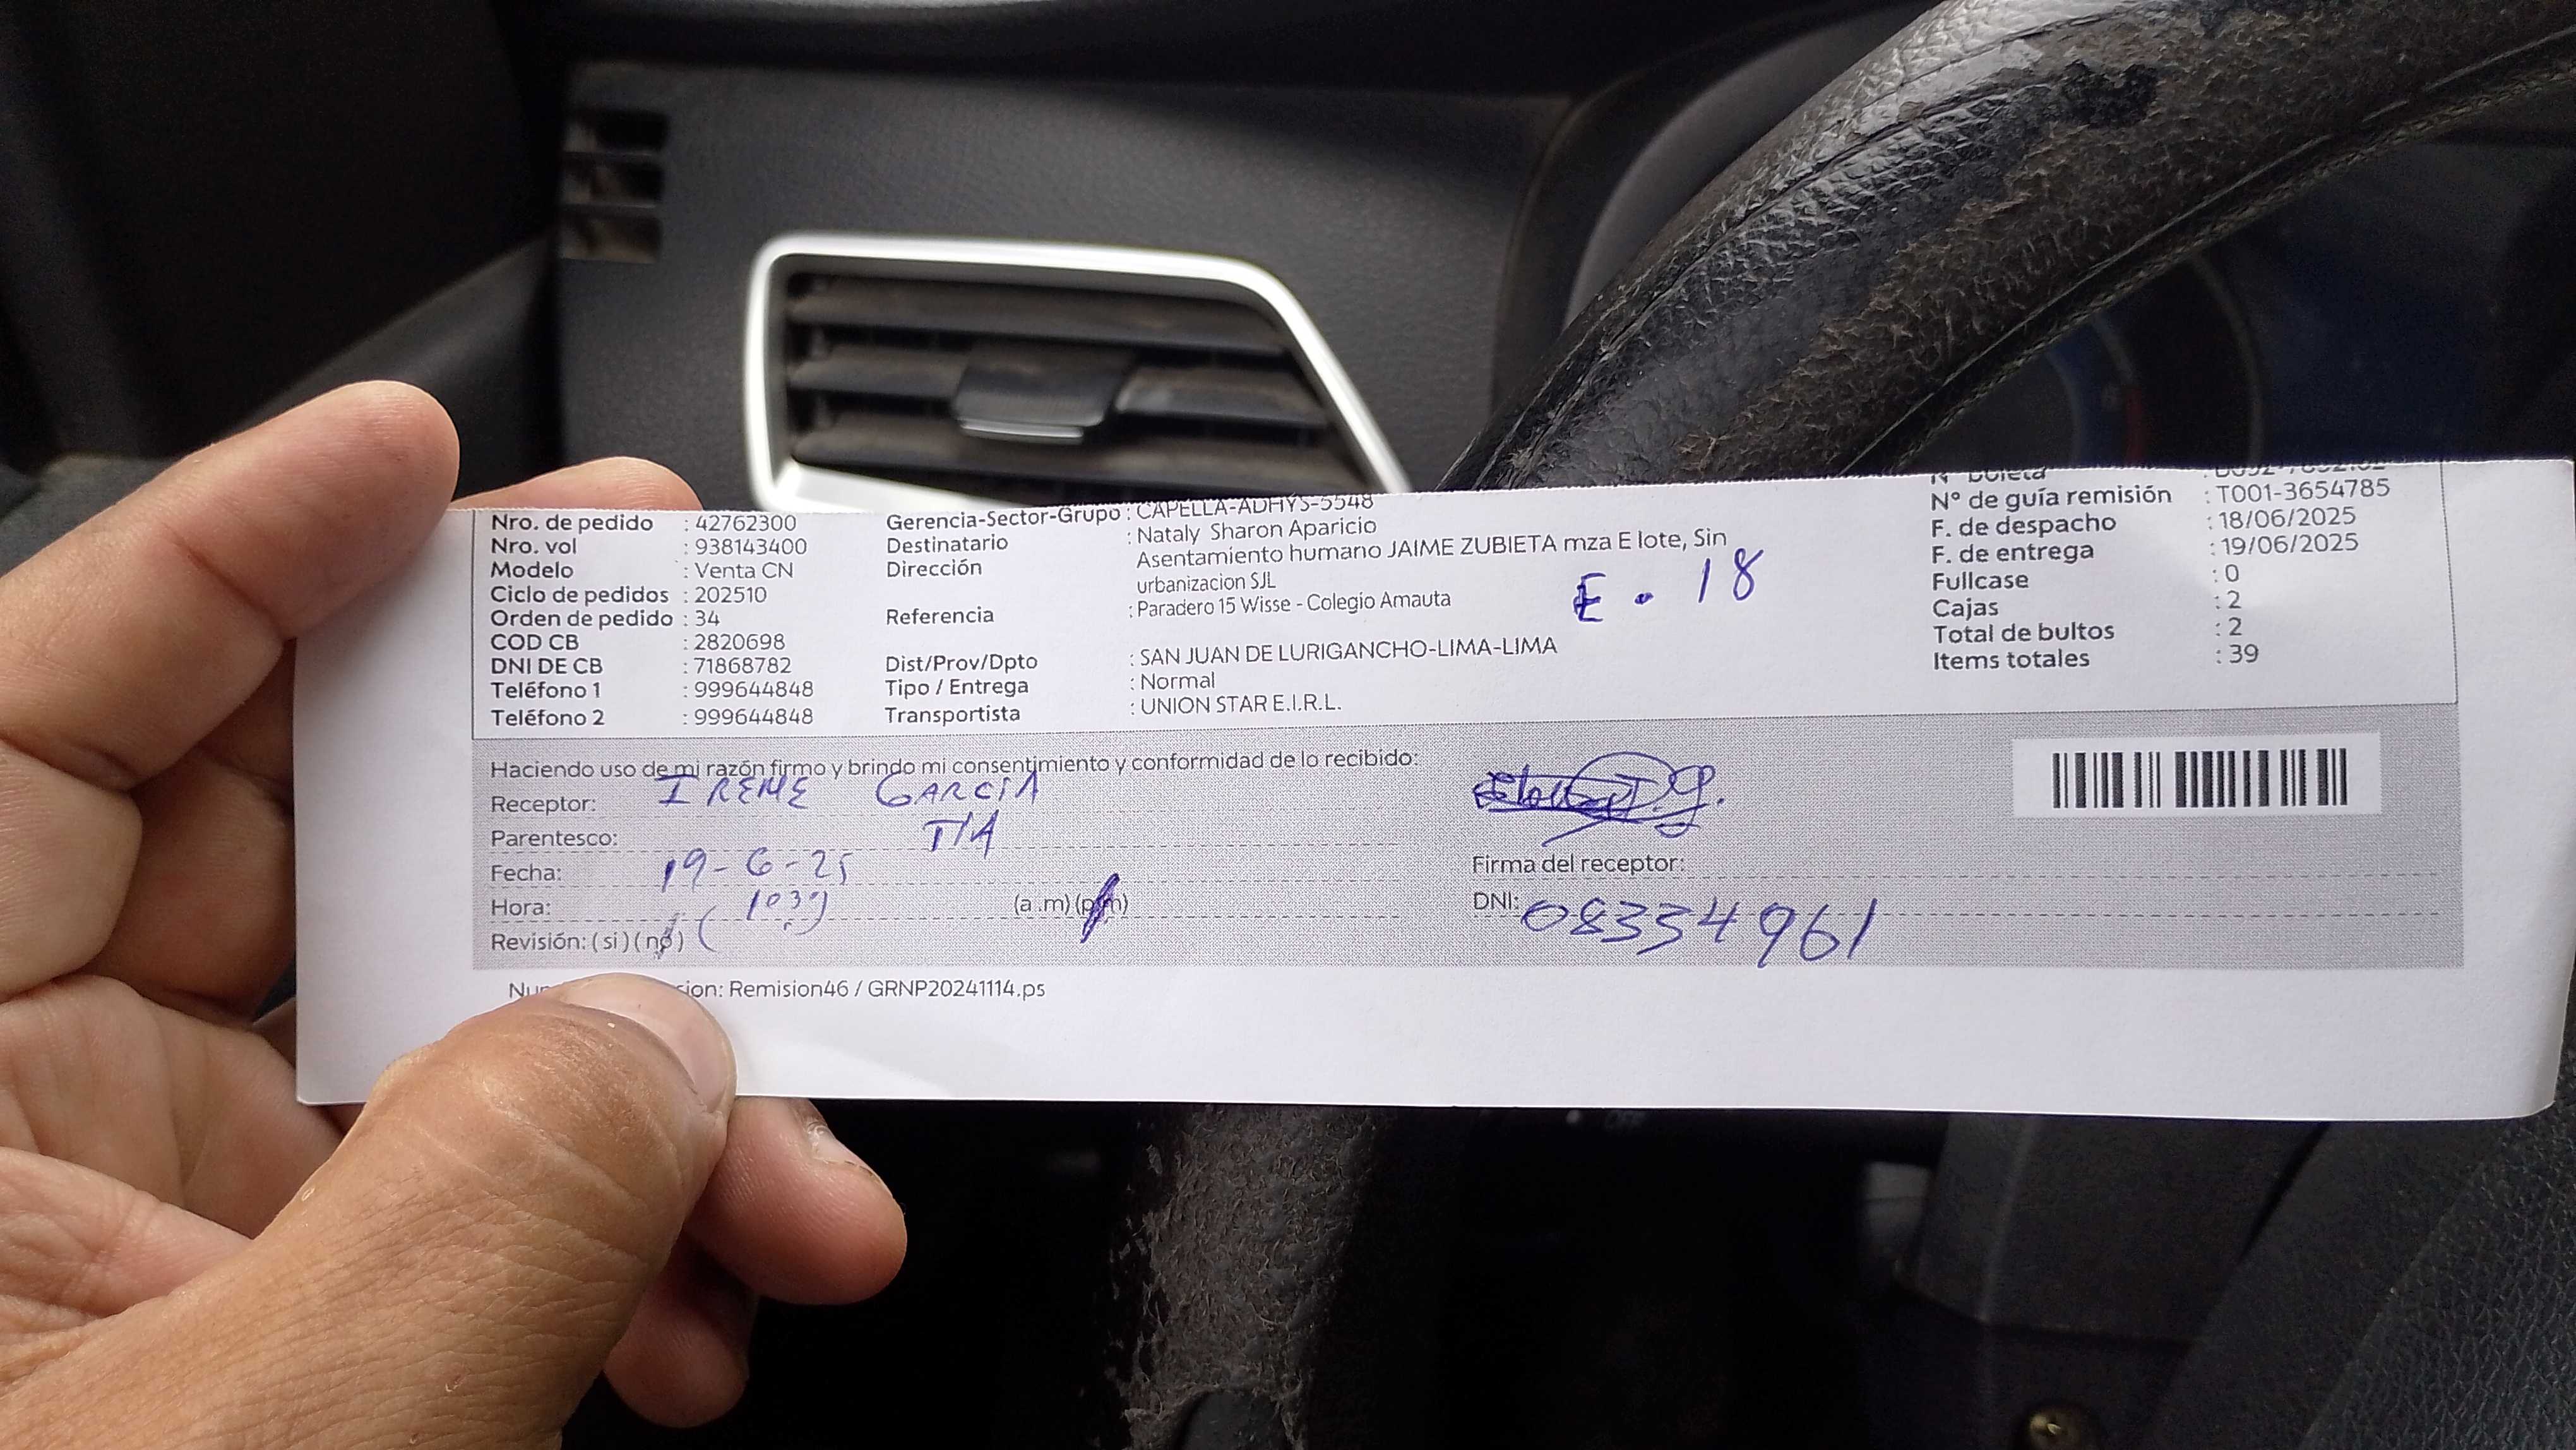 Nro. de pedido : 42762300
Nro. vol : 938143400
Modelo : Venta CN
Ciclo de pedidos : 202510
Orden de pedido : 34
COD CB : 2820698
DNI DE CB : 71868782
Teléfono 1 : 999644848
Teléfono 2 : 999644848
Gerencia-Sector-Grupo : CAPELLA-ADHYS-5548
Destinatario : Nataly Sharon Aparicio
Dirección Asentamiento humano JAIME ZUBIETA mza E lote, Sin
urbanizacion SJL
E. 18
Referencia : Paradero 15 Wisse - Colegio Amauta
Dist/Prov/Dpto : SAN JUAN DE LURIGANCHO-LIMA-LIMA
Tipo / Entrega : Normal
Transportista : UNION STAR E.I.R.L.
N° boleta
N° de guía remisión : T001-3654785
F. de despacho : 18/06/2025
F. de entrega : 19/06/2025
Fullcase : 0
Cajas : 2
Total de bultos : 2
Items totales : 39
Haciendo uso de mi razón firmo y brindo mi consentimiento y conformidad de lo recibido:
Receptor: IRENE GARCIA
Parentesco: TIA
Fecha: 19-6-25
Hora: 1039 (a .m) (p.m)
Revisión: ( si ) ( no )
Firma del receptor:
DNI: 08334961
sion: Remision46 / GRNP20241114.ps